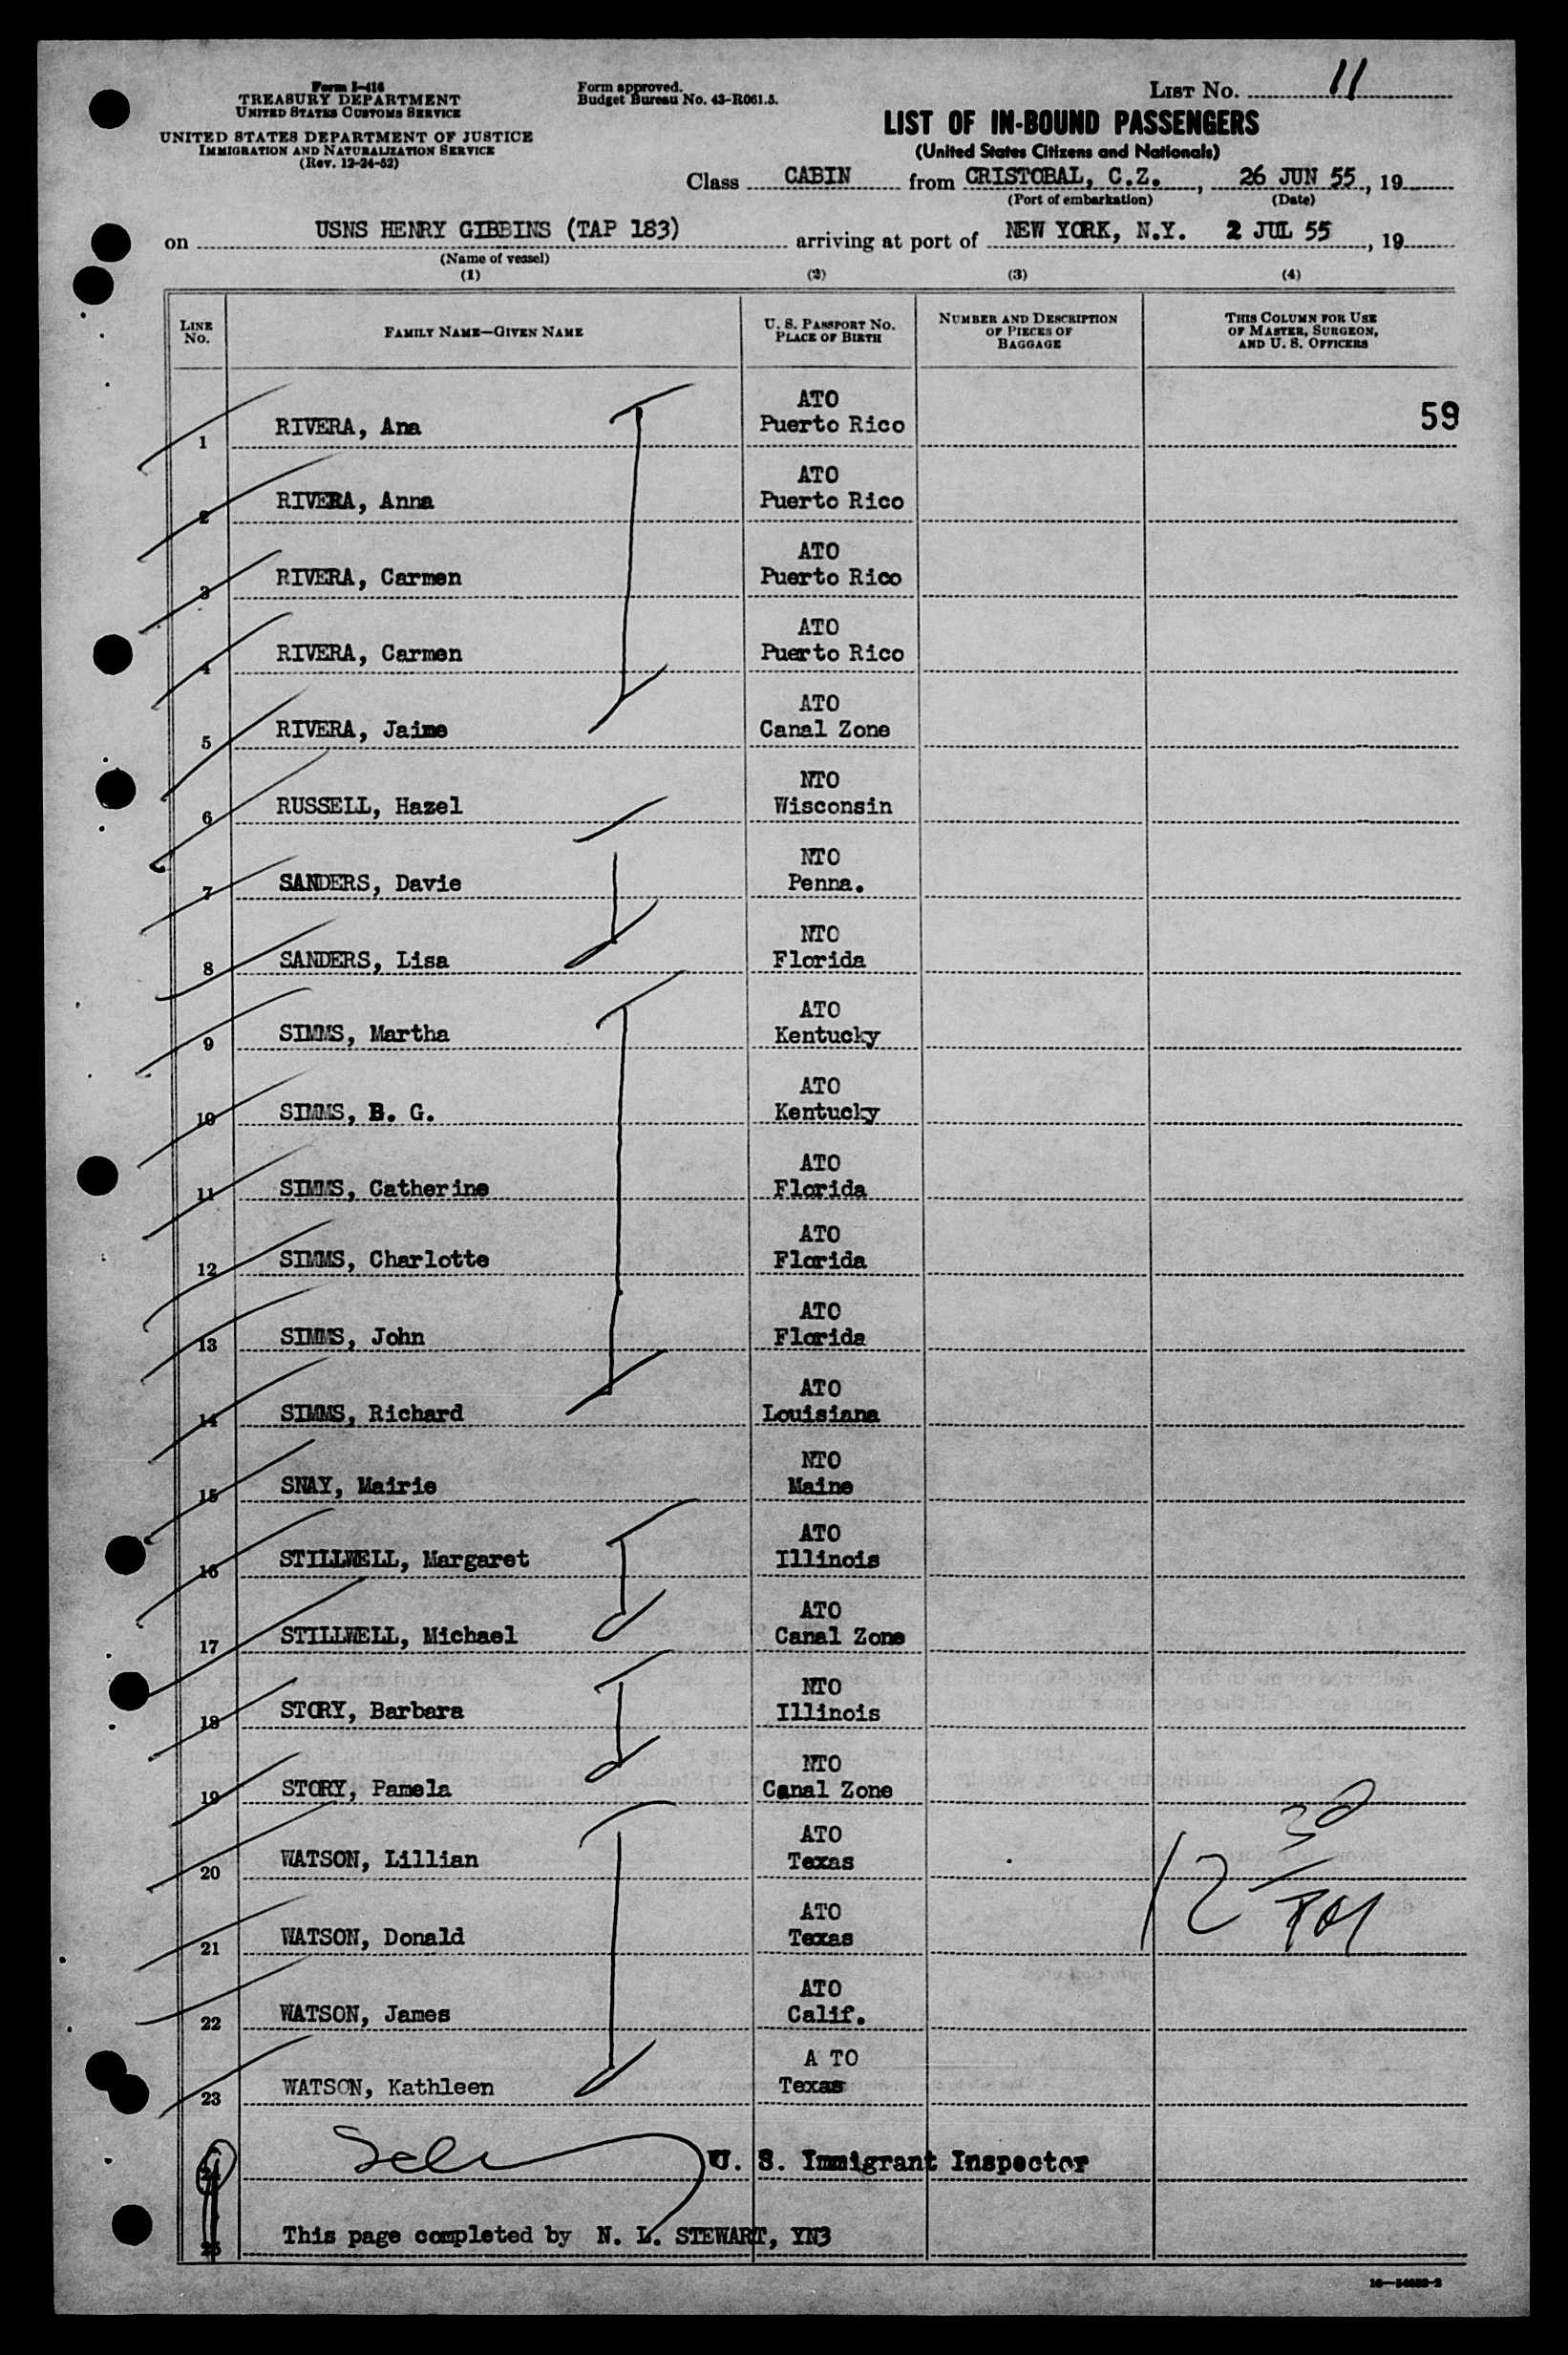 Form I-416
TREASURY DEPARTMENT
UNITED STATES CUSTOMS SERVICE
UNITED STATES DEPARTMENT OF JUSTICE
IMMIGRATION AND NATURALIZATION SERVICE
(Rev. 12-24-52)
Form approved.
Budget Bureau No. 43-R061.5.
LIST NO. 11
LIST OF IN-BOUND PASSENGERS
(United States Citizens and Nationals)
Class CABIN from CRISTOBAL, C.Z., 26 JUN 55, 19
(Port of embarkation) (Date)
on USNS HENRY GIBBINS (TAP 183) arriving at port of NEW YORK, N.Y. 2 JUL 55, 19
(Name of vessel)
(1) (2) (3) (4)
LINE NO. FAMILY NAME—GIVEN NAME U. S. PASSPORT NO. PLACE OF BIRTH NUMBER AND DESCRIPTION OF PIECES OF BAGGAGE THIS COLUMN FOR USE OF MASTER, SURGEON, AND U. S. OFFICERS
ATO
1 RIVERA, Ana Puerto Rico 59
ATO
2 RIVERA, Anna Puerto Rico
ATO
3 RIVERA, Carmen Puerto Rico
ATO
4 RIVERA, Carmen Puerto Rico
ATO
5 RIVERA, Jaime Canal Zone
NTO
6 RUSSELL, Hazel Wisconsin
NTO
7 SANDERS, Davie Penna.
NTO
8 SANDERS, Lisa Florida
ATO
9 SIMMS, Martha Kentucky
ATO
10 SIMMS, B. G. Kentucky
ATO
11 SIMMS, Catherine Florida
ATO
12 SIMMS, Charlotte Florida
ATO
13 SIMMS, John Florida
ATO
14 SIMMS, Richard Louisiana
NTO
15 SNAY, Mairie Maine
ATO
16 STILLWELL, Margaret Illinois
ATO
17 STILLWELL, Michael Canal Zone
NTO
18 STORY, Barbara Illinois
NTO
19 STORY, Pamela Canal Zone
ATO
20 WATSON, Lillian Texas
ATO
21 WATSON, Donald Texas
12 30 PM
ATO
22 WATSON, James Calif.
A TO
23 WATSON, Kathleen Texas
24 U. S. Immigrant Inspector
25 This page completed by N. L. STEWART, YN3